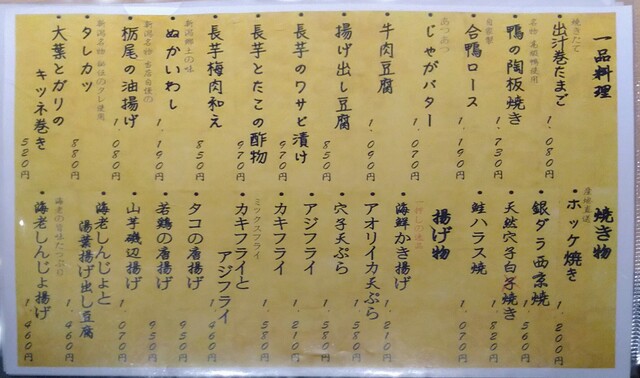 一品料理
焼きたて
・出汁巻たまご 1.080円
・鴨の陶板焼き 1.730円
自家製
・合鴨ロース 1.190円
あつあつ
・じゃがバター 1.070円
・牛肉豆腐 1.090円
・揚げ出し豆腐 850円
・長芋のワサビ漬け 970円
・長芋とたこの酢物 970円
・長芋梅肉和え 850円
新潟郷土の味
・ぬかいわし 1.190円
新潟名物 当店自慢の
・栃尾の油揚げ 1.080円
新潟名物 秘伝のタレ使用
・タレカツ 880円
・大葉とガリの
キツネ巻き 520円
焼き物
産地直送
・ホッケ焼き 1.200円
・銀ダラ西京焼 1.560円
・天然穴子白子焼き 1.820円
・鮭ハラス焼 1.070円
揚げ物
一押しの逸品
・海鮮かき揚げ 1.210円
・アオリイカ天ぷら 1.580円
・穴子天ぷら 1.580円
・アジフライ 1.210円
・カキフライ 1.580円
ミックスフライ
・カキフライと
アジフライ 1.460円
・タコの唐揚げ 950円
・若鶏の唐揚げ 950円
・山芋磯辺揚げ 1.070円
・海老しんじょと
湯葉揚げ出し豆腐 1.460円
海老の旨味たっぷり
・海老しんじょ揚げ 1.460円